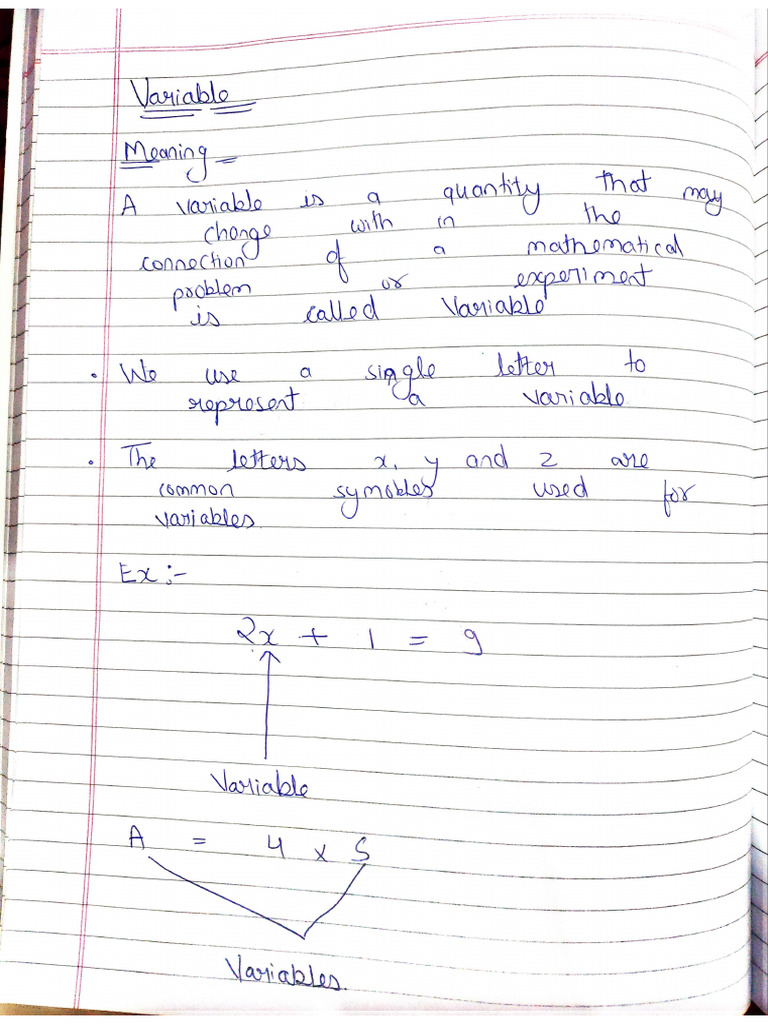 Variable
Meaning
A variable is a quantity that may
change with in the
connection of a mathematical
problem or experiment
is called Variable
• We use a single letter to
represent a variable
• The letters x, y and z are
common symobles used for
variables.
Ex :-
2x + 1 = 9
Variable
A = 4 x S
Variables.